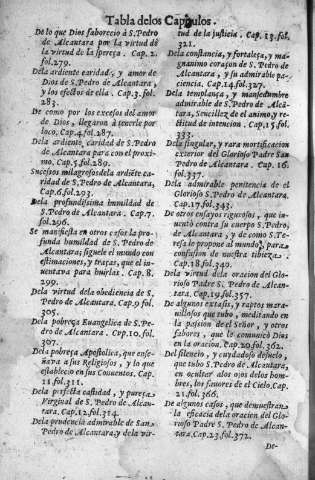 Tabla delos Capitulos.
De lo que Dios saborecio à S. Pedro
de Alcantara por la virtud de
la virtud de la spereça. Cap. 2.
fol. 279.
Dela ardiente caridad, y amor de
Dios de S. Pedro de Alcantara,
y los efectos de ella. Cap. 3. fol.
283.
De como por los excesos del amor
de Dios, llegaron à tenerle por
loco, Cap. 4. fol. 287.
Dela ardiente, caridad de S. Pedro
de Alcantara para con el proxi-
mo. Cap. 5. fol. 289.
Sucessos milagrosos dela ardiēte ca-
ridad de S. Pedro de Alcantara,
Cap. 6. fol. 293.
Dela profundissima humildad de
S. Pedro de Alcantara. Cap. 7.
fol. 296.
Se manifiesta en otros casos la pro-
funda humildad de S. Pedro de
Alcantara; siguele el mundo con
estimaciones, y traças, que el in-
uentava para huirlas. Cap. 8.
299.
Dela virtud dela obediencia de S.
Pedro de Alcantara. Cap. 9. fol.
305.
Dela pobreça Euangelica de S. Pe-
dro de Alcantara. Cap. 10. fol.
307.
Dela pobreça Apostolica, que ense-
ñava a sus Religiosos, y lo que
establecio en sus Conuentos. Cap.
11. fol. 311.
Dela perfecta castidad, y pureça
Virginal de S. Pedro de Alcan-
tara, Cap. 12. fol. 314.
Dela prudencia admirable de San
Pedro de Alcantara, y dela vir-
tud de la justicia. Cap. 13. fol.
321.
Dela constancia, y fortaleça, y mag-
nanimo coraçon de S. Pedro de
Alcantara, y su admirable pa-
ciencia. Cap. 14. fol. 327.
Dela templança, y mansedumbre
admirable de S. Pedro de Alcā-
tara, Sencillez de el animo, y re-
ctitud de intencion. Cap. 15. fol.
333.
Dela singular, y rara mortificacion
exterior del Glorioso Padre San
Pedro de Alcantara. Cap. 16.
fol. 337.
Dela admirable penitencia de el
Glorioso S. Pedro de Alcantara.
Cap. 17. fol. 343.
De otros ensayos rigurosos, que in-
uentò contra su cuerpo S. Pedro,
de Alcantara, y de como S. Te-
resa lo propone al mundo, para
confusion de nuestra tibieza.
Cap. 18. fol. 349.
Dela virtud dela oracion del Glo-
rioso Padre S. Pedro de Alcan-
tara. Cap. 19. fol. 357.
De algunos extasis, y raptos mara-
uillosos que tubo, meditando en
la passion de el Señor, y otros
fabores, que le comunicò Dios
en la oracion. Cap. 20. fol. 362.
Del silencio, y cuydadoso desuelo,
que tubo S. Pedro de Alcantara,
en ocultar alos ojos delos hom-
bres, los fauores de el Cielo. Cap.
21. fol. 366.
De algunos casos, que demuestran
la eficacia dela oracion del Glo-
rioso Padre S. Pedro de Alcan-
tara. Cap. 23. fol. 372.
De-